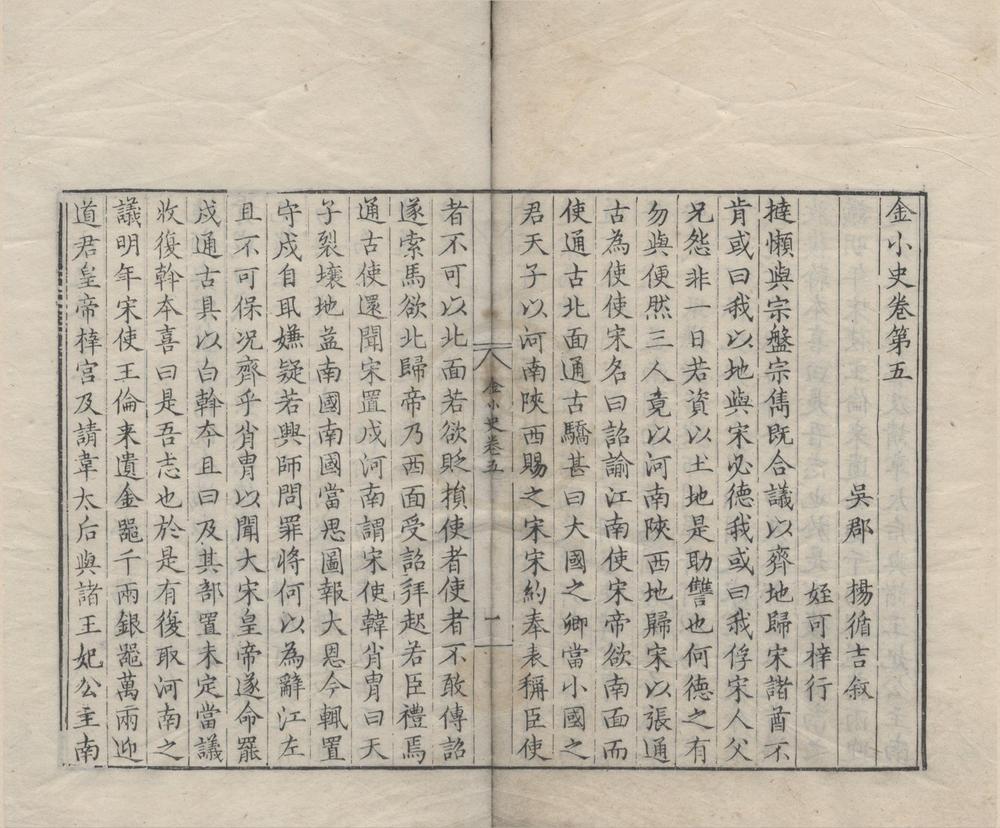 金小史卷第五
吳郡 楊循吉叙
姪可梓行
撻懶與宗盤宗雋既合議以齊地歸宋諸酋不
肯或曰我以地與宋必德我或曰我俘宋人父
兄怨非一日若資以土地是助讐也何德之有
勿與便然三人竟以河南陝西地歸宋以張通
古為使使宋名曰詔諭江南使宋帝欲南面而
使通古北面通古驕甚曰大國之卿當小國之
君天子以河南陝西賜之宋宋約奉表稱臣使
金小史卷五
一
者不可以北面若欲貶損使者使者不敢傳詔
遂索馬欲北歸帝乃西面受詔拜起若臣禮焉
通古使還聞宋置戍河南謂宋使韓肖胄曰天
子裂壤地益南國南國當思圖報大恩今輒置
守戍自取嫌疑若興師問罪將何以為辭江左
且不可保况齊乎肖胄以聞大宋皇帝遂命罷
戍通古具以白斡夲且曰及其部置未定當議
收復斡夲喜曰是吾志也於是有復取河南之
議明年宋使王倫来遺金噐千兩銀噐萬兩迎
道君皇帝梓宮及請韋太后與諸王妃公主南